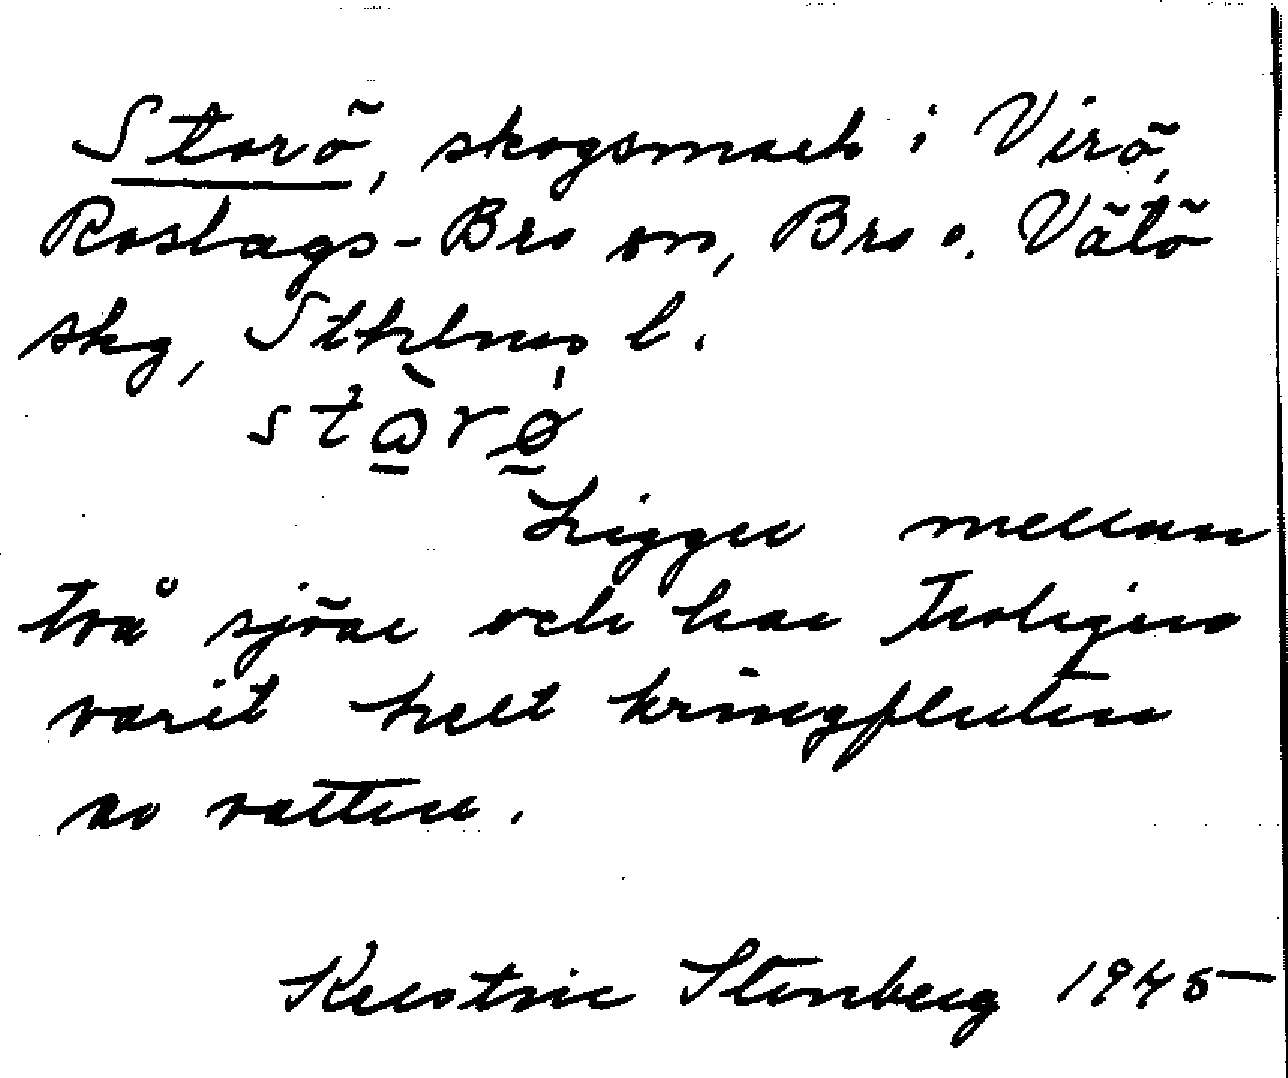 Storö, skogsmark i Virö,
Roslags-Bro sn, Bro o. Vätö
skg, Sthlms l.
stò̱rǿ̱
Ligger mellan
två sjöar och har troligen
varit helt kringfluten
av vatten.
Kerstin Stenberg 1945